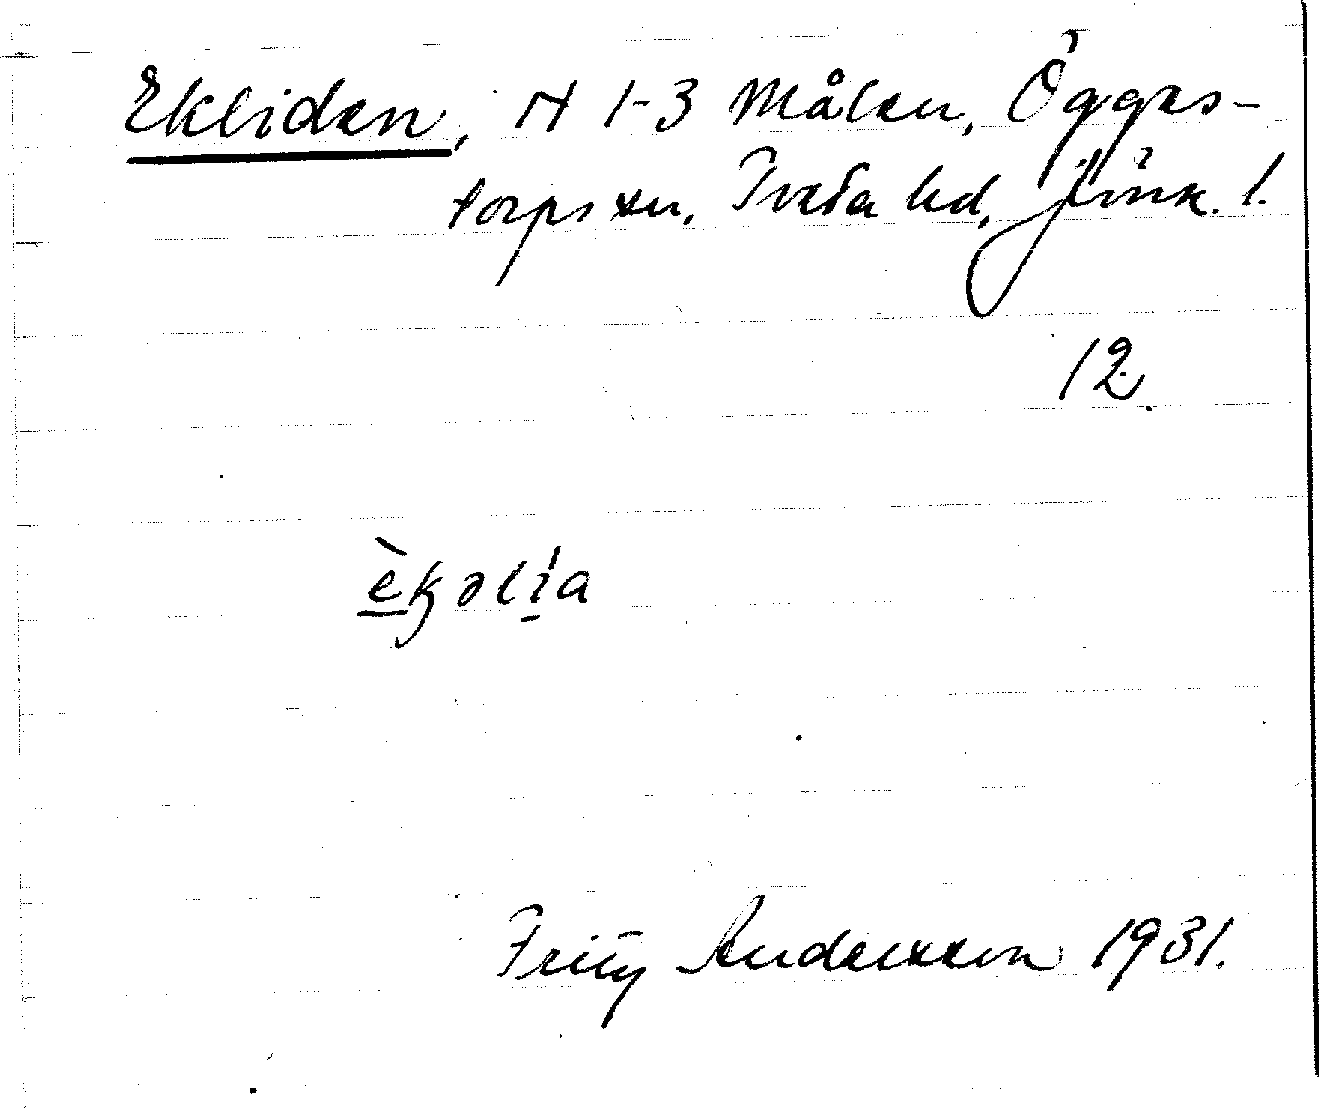 Ekliden, H 1-3 Målen, Ögges-
torps sn, Tveta hd, Jönk. l.
12.
èkəlía
Fritz Andersson 1931.